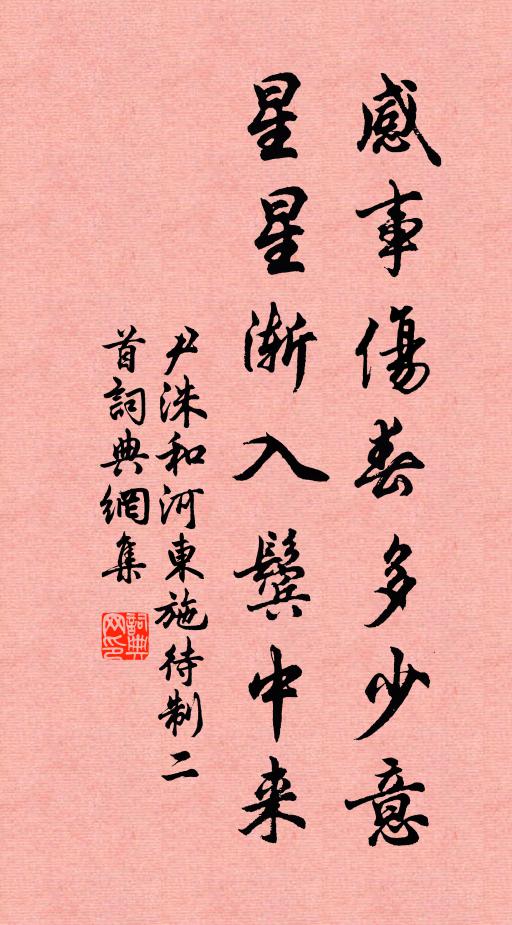 感事傷春多少意
星星漸入鬢中来
尹洙和河東施待制二
首詞典網集
詞典
网印